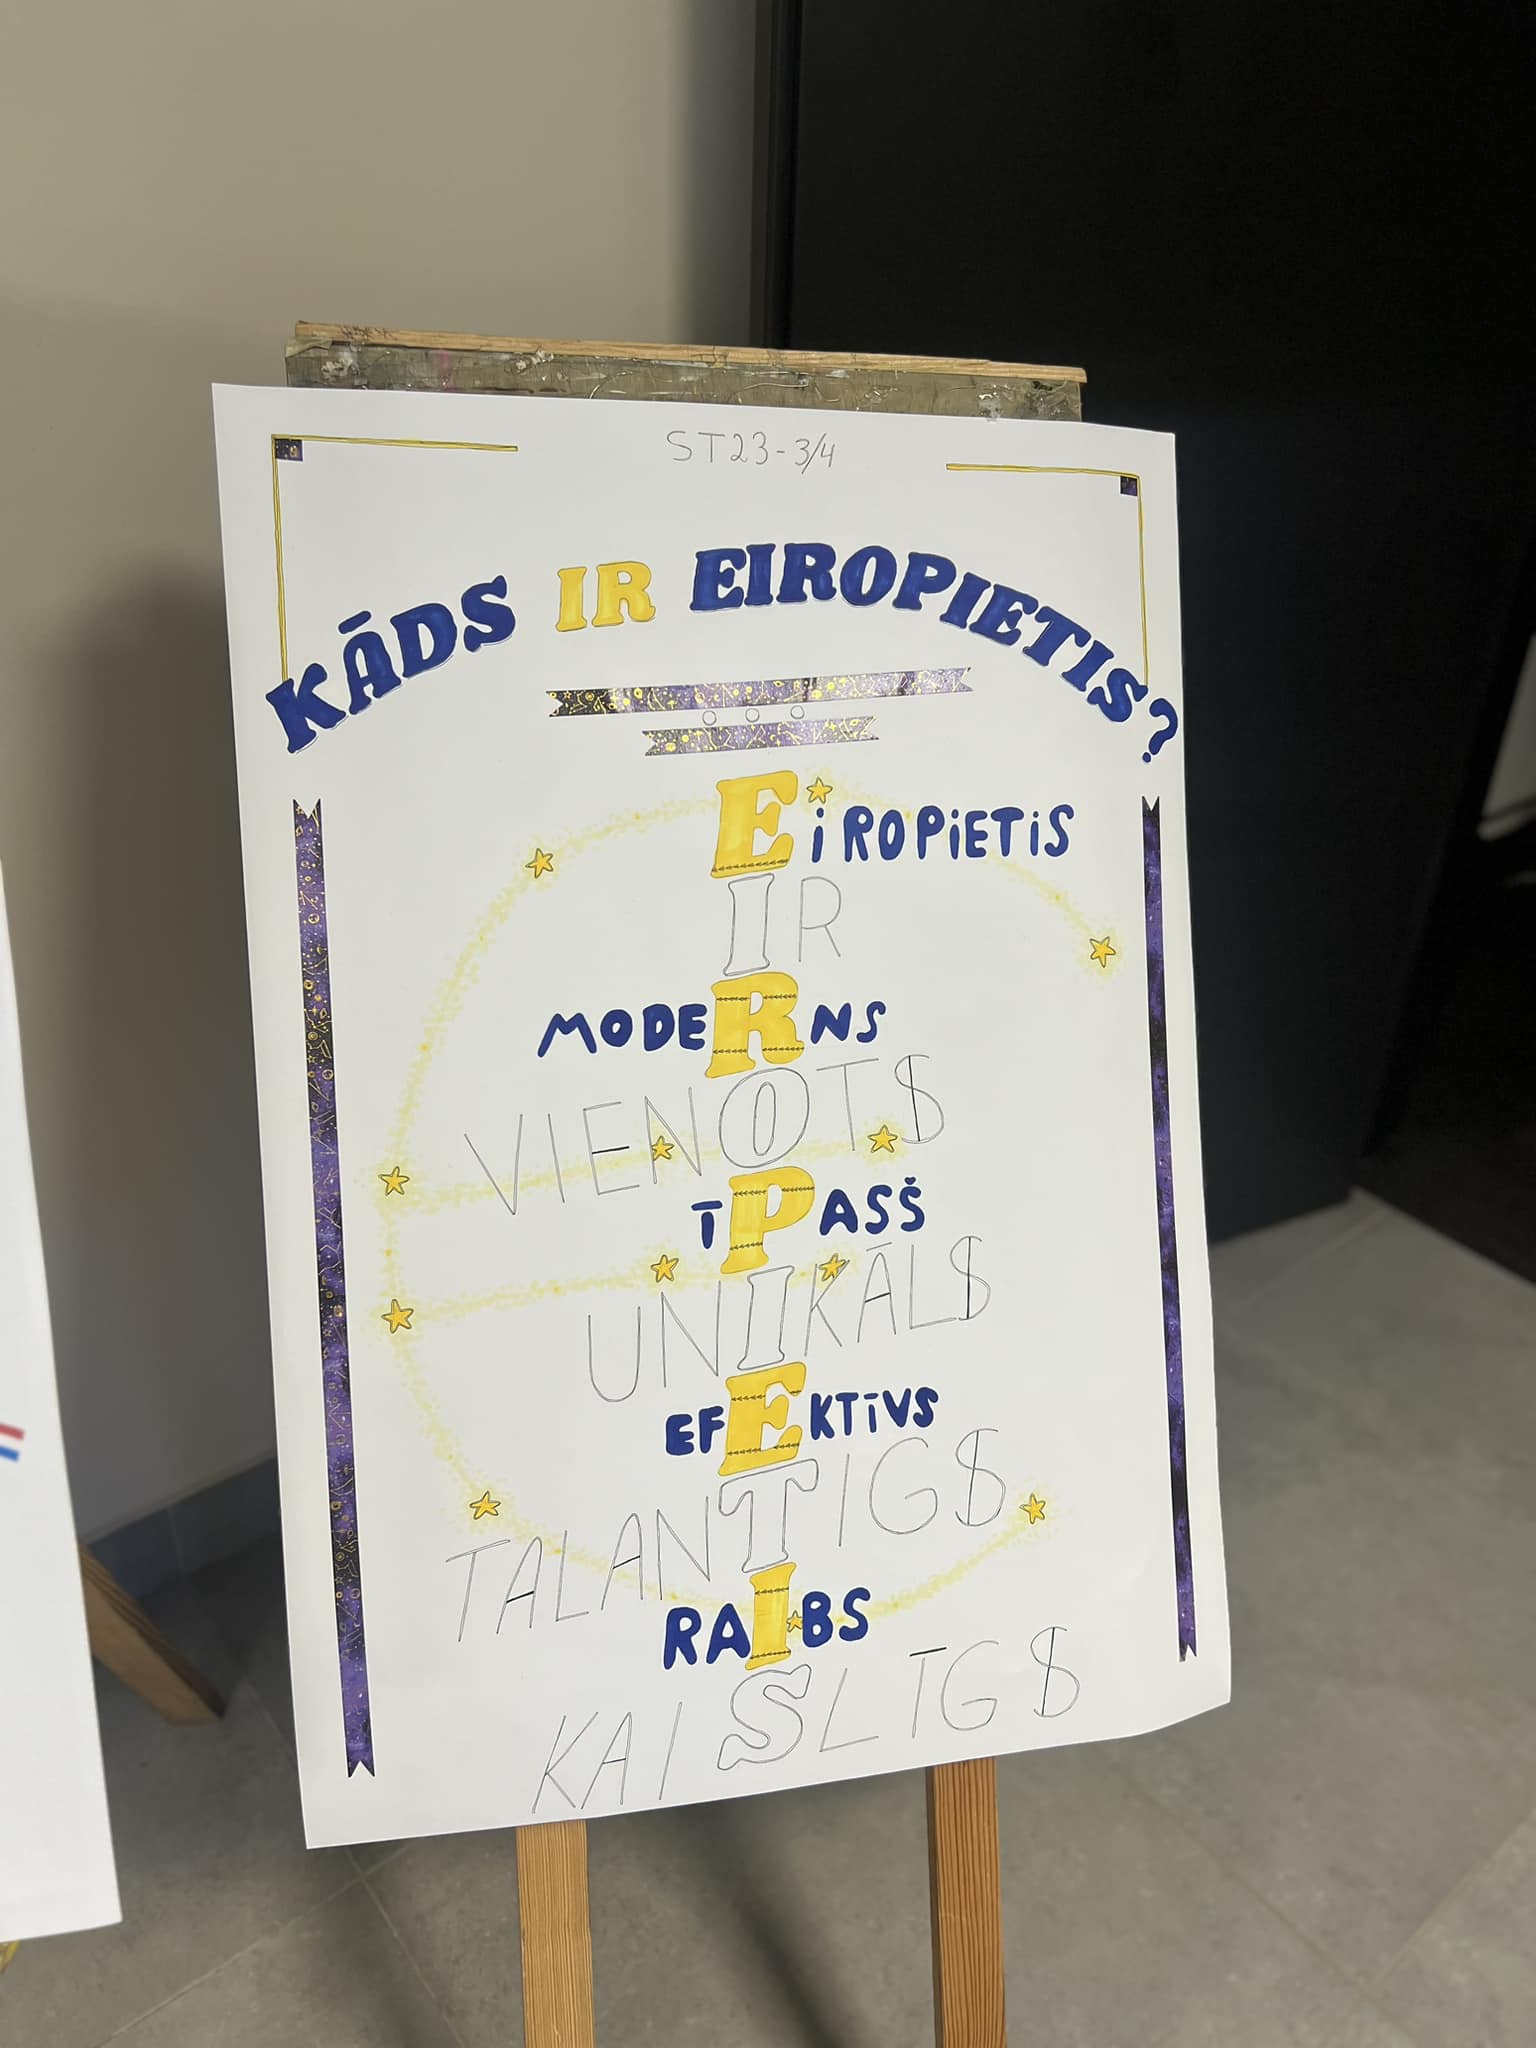 ST23-3/4
KĀDS IR EIROPIETIS?
EiROPiETiS
IR
MODERNS
VIENOTS
ĪPAŠS
UNIKĀLS
EFEKTĪVS
TALANTIGS
RAIBS
KAISLĪGS